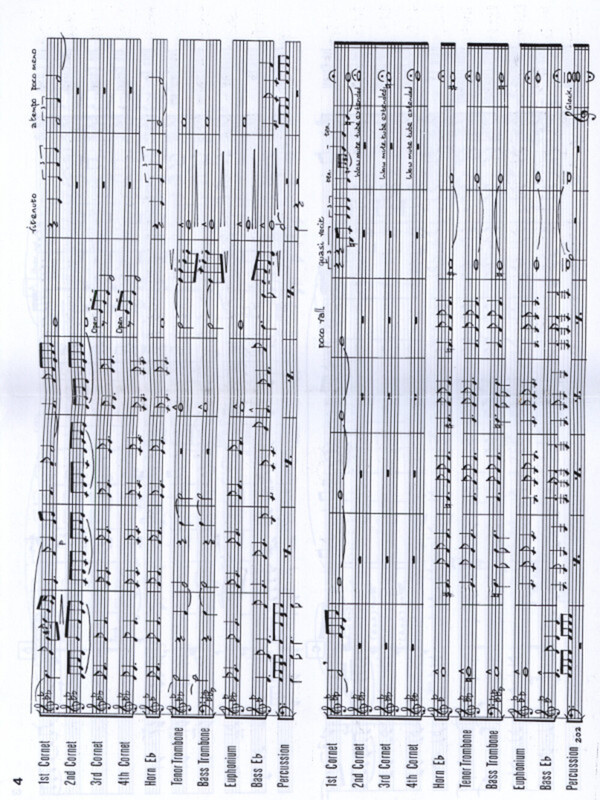 4
ritenuto a tempo poco meno
1st Cornet
2nd Cornet
P
3rd Cornet
Open
4th Cornet
Open
Horn E♭
Tenor Trombone
Bass Trombone
Euphonium
Bass E♭
Percussion
poco rall quasi recit
1st Cornet
2nd Cornet
Wow mute tube extended
3rd Cornet
Wow mute tube extended
4th Cornet
Wow mute tube extended
Horn E♭
Tenor Trombone
Bass Trombone
Euphonium
Bass E♭
Glock.
Percussion
202